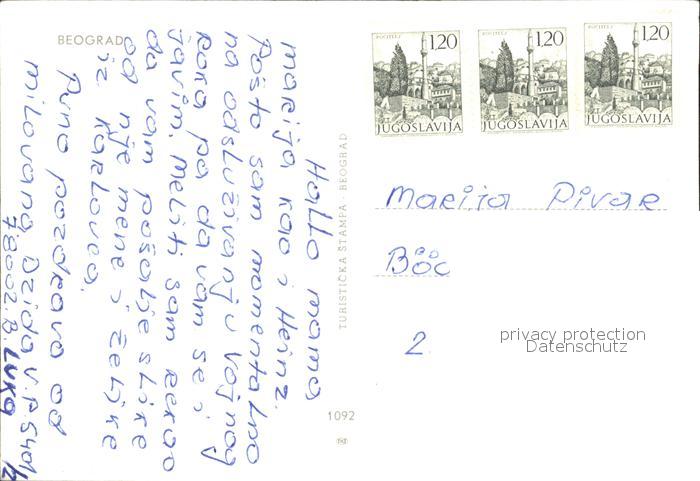 BEOGRAD
Hallo mama
marija kao i Heinz.
Pošto sam momentalno
na odsluživanju vojnog
roka pa da vam se i
javim. Meliti sam rekao
da vam pošalje slike
od nje mene i željke
iz Karlovca.
Puno pozdrava od
milovana Dzida V.P. 5401/2
78002. B. LUKA
TURISTIČKA ŠTAMPA - BEOGRAD
1092
POČITELJ
1,20
JUGOSLAVIJA
POČITELJ
1,20
JUGOSLAVIJA
POČITELJ
1,20
JUGOSLAVIJA
Marija Pivar
2
privacy protection
Datenschutz